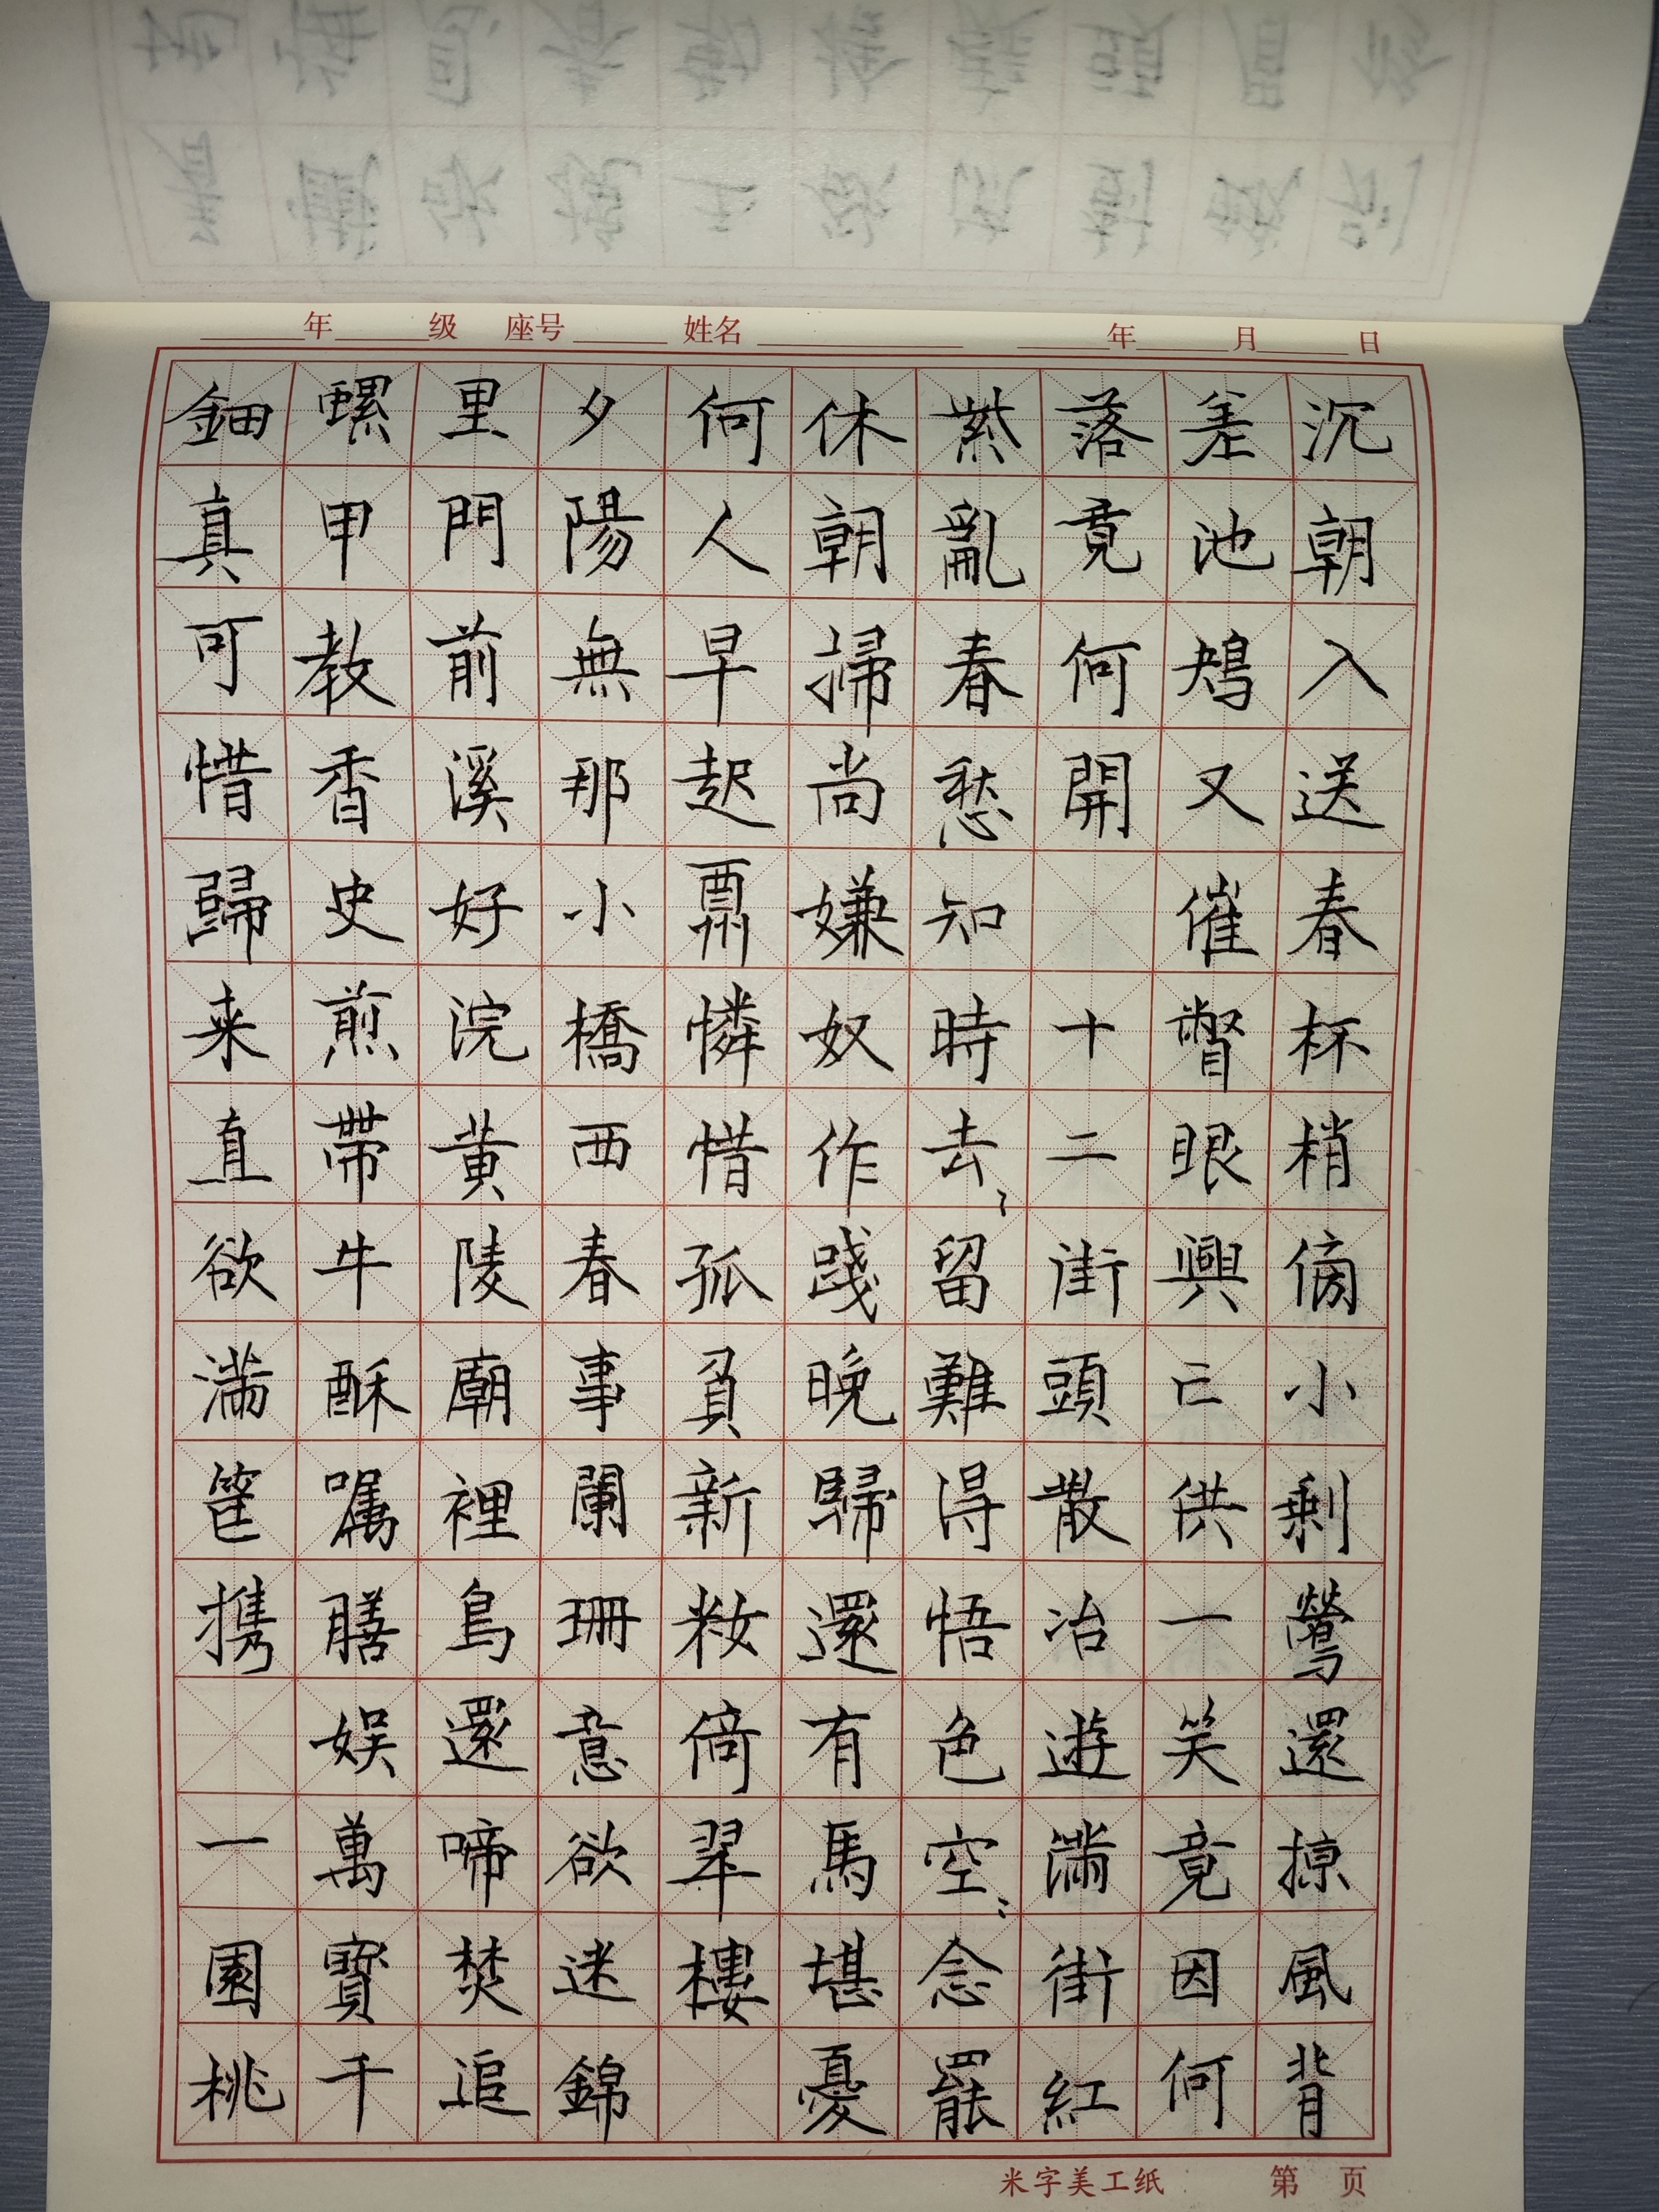 沉朝入送春杯梢傍小剩鶯還掠風背
差池鴂又催瞥眼興亡供一笑竟因何
落竟何開 十二街頭散冶遊滿街紅
紫亂春愁知時去〻留難得悟色空〻念罷
休朝掃尚嫌奴作踐晚歸還有馬堪憂
何人早起肅憐惜孤負新妝倚翠樓
夕陽無那小橋西春事闌珊意欲迷錦
里門前溪好浣黄陵廟裡鳥還啼焚追
螺甲教香史煎帶牛酥囑膳娛萬寶千
鈿真可惜歸来直欲滿筐携 一園桃
年 级 座号 姓名 年 月 日
米字美工纸 第 页